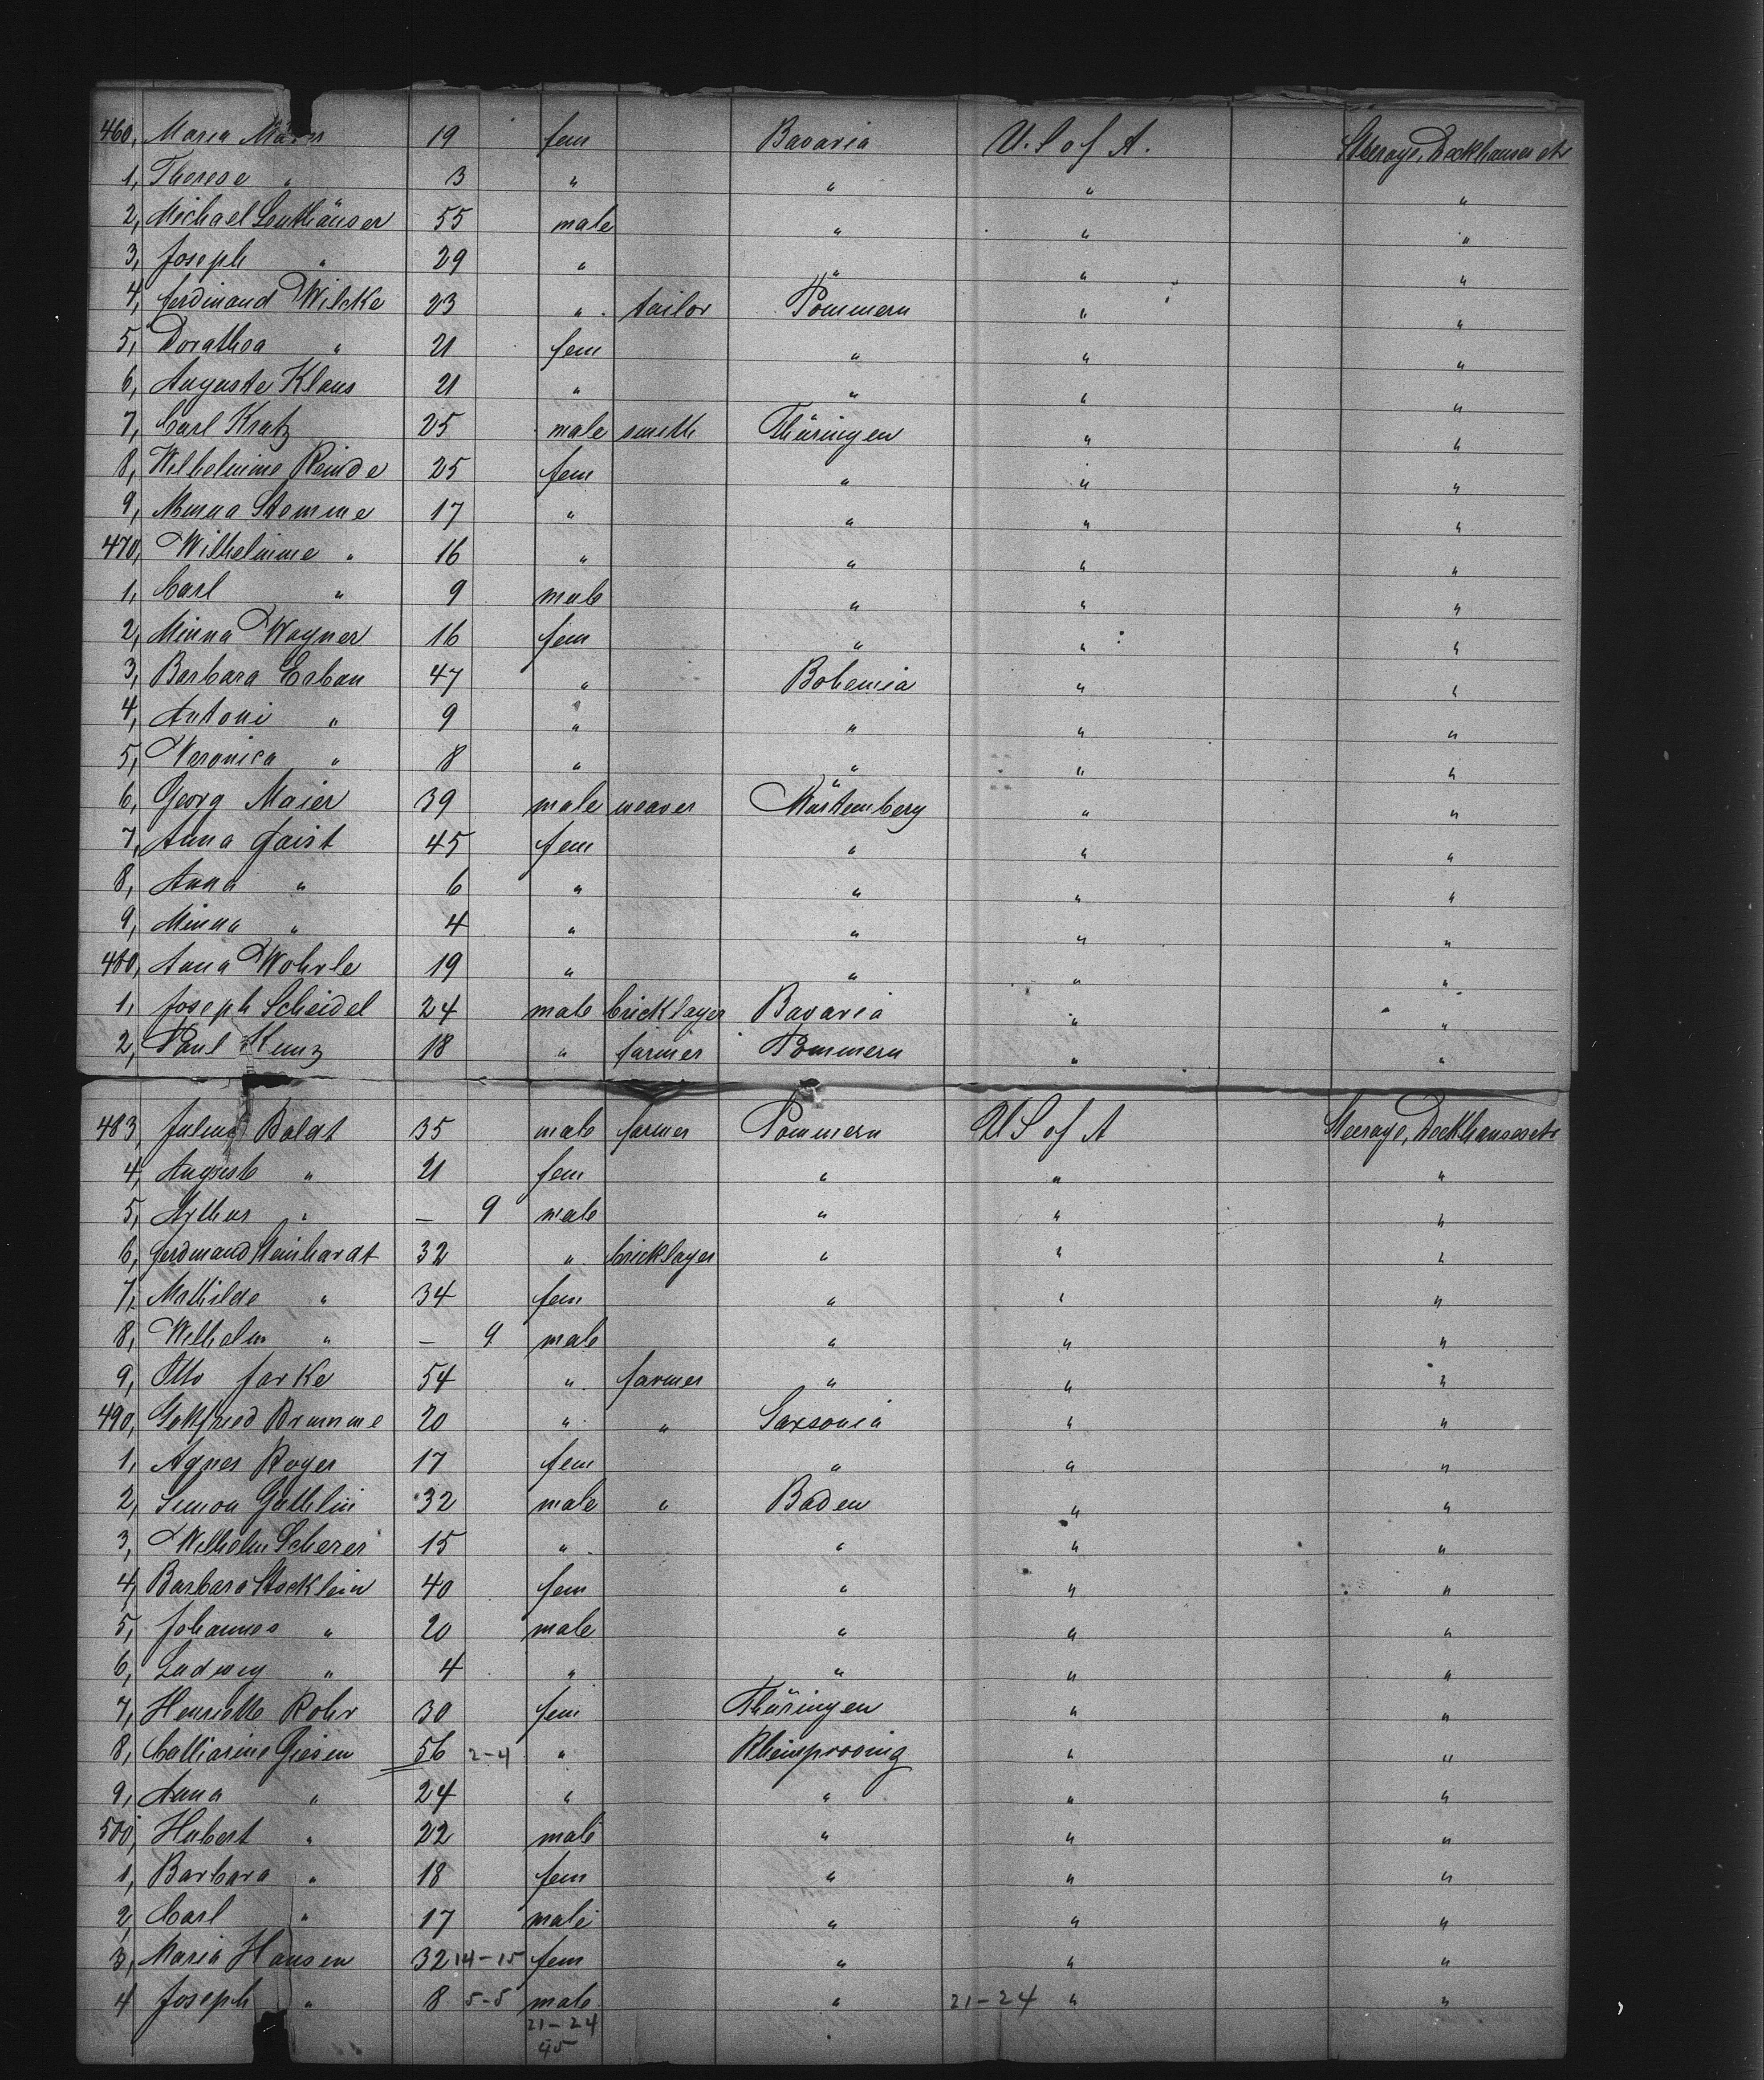 460, Maria 19 fem Bavaria U. S of A. Steerage, Deckhauses etc
1, Therese " 3 " " " "
2, Michael Leuthäuser 55 male " " "
3, Joseph " 29 " " " "
4, Ferdinand Wilcke 23 " tailor Pommern " "
5, Dorathea " 21 fem " " "
6, Auguste Klaus 21 " " " "
7, Carl Kratz 25 male smith Thüringen " "
8, Wilhelmine Reinde 25 fem " " "
9, Minna Stemme 17 " " " "
470, Wilhelmine " 16 " " " "
1, Carl " 9 male " " "
2, Minna Wagner 16 fem " " "
3, Barbara Erban 47 " Bohemia " "
4, Antoni " 9 " " " "
5, Veronica " 8 " " " "
6, Georg Maier 39 male weaver Würtemberg " "
7, Anna Gaist 45 fem " " "
8, Anna " 6 " " " "
9, Minna " 4 " " " "
480, Anna Wohrle 19 " " " "
1, Joseph Scheidel 24 male bricklayer Bavaria " "
2, Paul Kunz 18 " farmer Pommern " "
483, Julius Boldt 35 male farmer Pommern U S of A Steerage, Deckhauses etc
4, Auguste " 21 fem " " "
5, Arthur " – 9 male " " "
6, Ferdinand Steinhardt 32 " bricklayer " " "
7, Mathilde " 34 fem " " "
8, Wilhelm " – 9 male " " "
9, Otto Farke 54 " farmer " " "
490, Gottfried Brumme 20 " " Saxsonia " "
1, Agnes Royer 17 fem " " "
2, Simon Guthlin 32 male " Baden " "
3, Wilhelm Scherer 15 " " " "
4, Barbara Stocklein 40 fem " " "
5, Johannes " 20 male " " "
6, Ludwig " 4 " " " "
7, Henriette Rohr 30 fem Thüringen " "
8, Catharine Giesen 56 2-4 " Rheinproving " "
9, Anna " 24 " " " "
500, Hubert " 22 male " " "
1, Barbara " 18 fem " " "
2, Carl " 17 male " " "
3, Maria Hansen 32 14-15 fem " " "
4 Joseph " 8 5-5 male " 21-24 " "
21-24
45